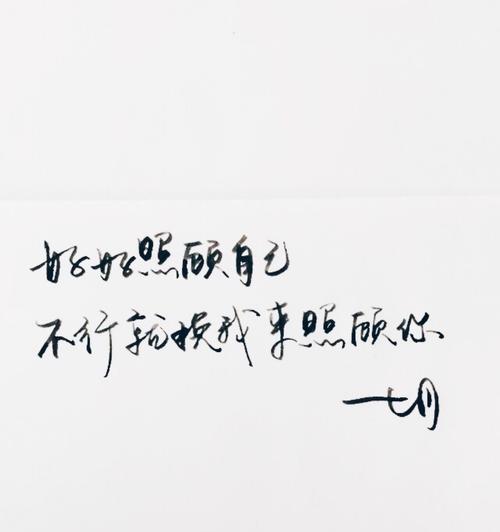 好好照顾自己
不行就换我来照顾你
一七月